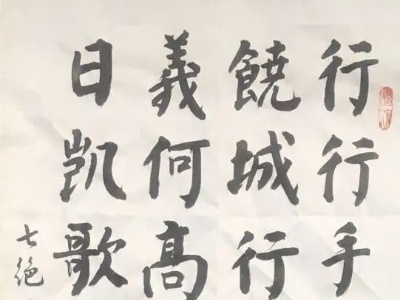 行行手
饒城行
義何高
日凱歌
七絕